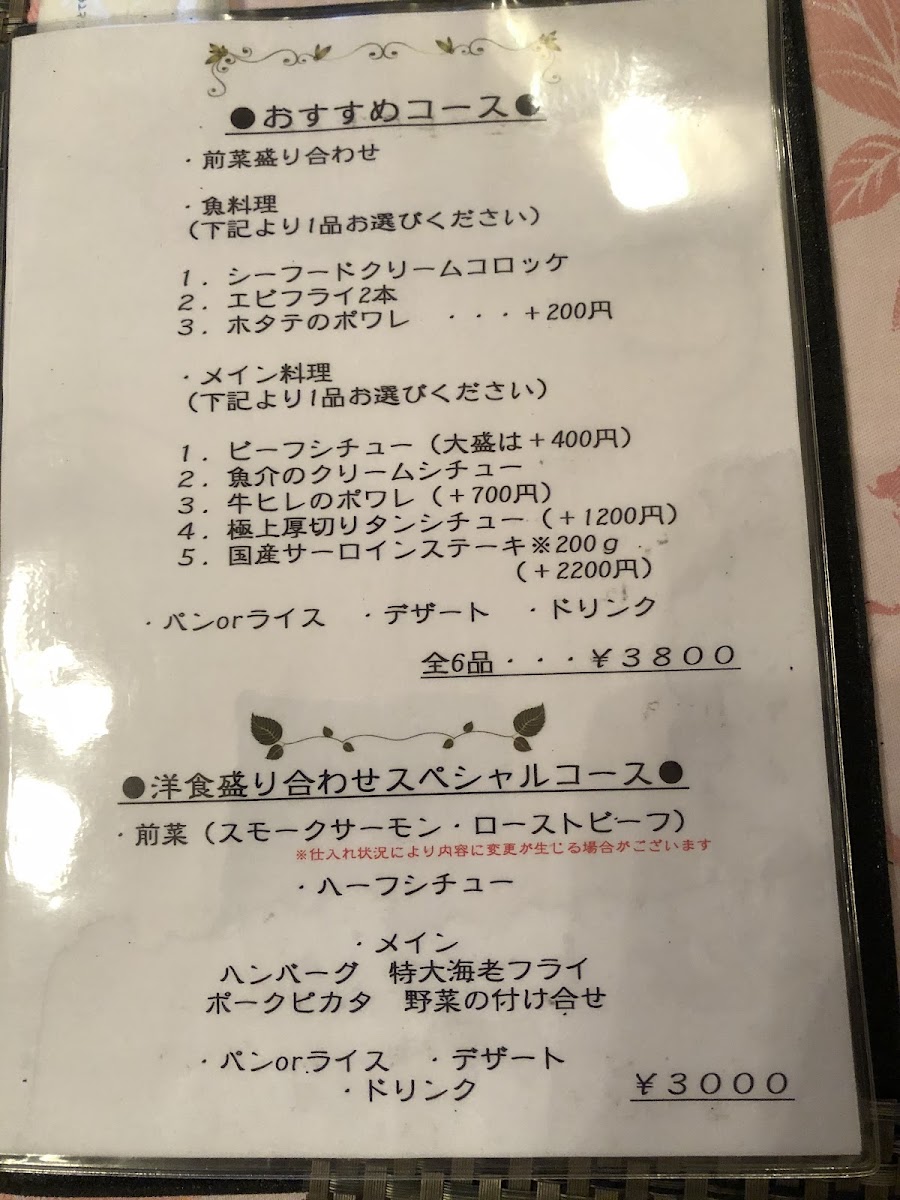 ●おすすめコース●
・前菜盛り合わせ
・魚料理
(下記より1品お選びください)
1．シーフードクリームコロッケ
2．エビフライ2本
3．ホタテのポワレ ・・・＋200円
・メイン料理
(下記より1品お選びください)
1．ビーフシチュー(大盛は＋400円)
2．魚介のクリームシチュー
3．牛ヒレのポワレ(＋700円)
4．極上厚切りタンシチュー(＋1200円)
5．国産サーロインステーキ※200ｇ
(＋2200円)
・パンorライス ・デザート ・ドリンク
全6品・・・￥３８００
●洋食盛り合わせスペシャルコース●
・前菜(スモークサーモン・ローストビーフ)
※仕入れ状況により内容に変更が生じる場合がございます
・ハーフシチュー
・メイン
ハンバーグ 特大海老フライ
ポークピカタ 野菜の付け合せ
・パンorライス ・デザート
・ドリンク ￥３０００